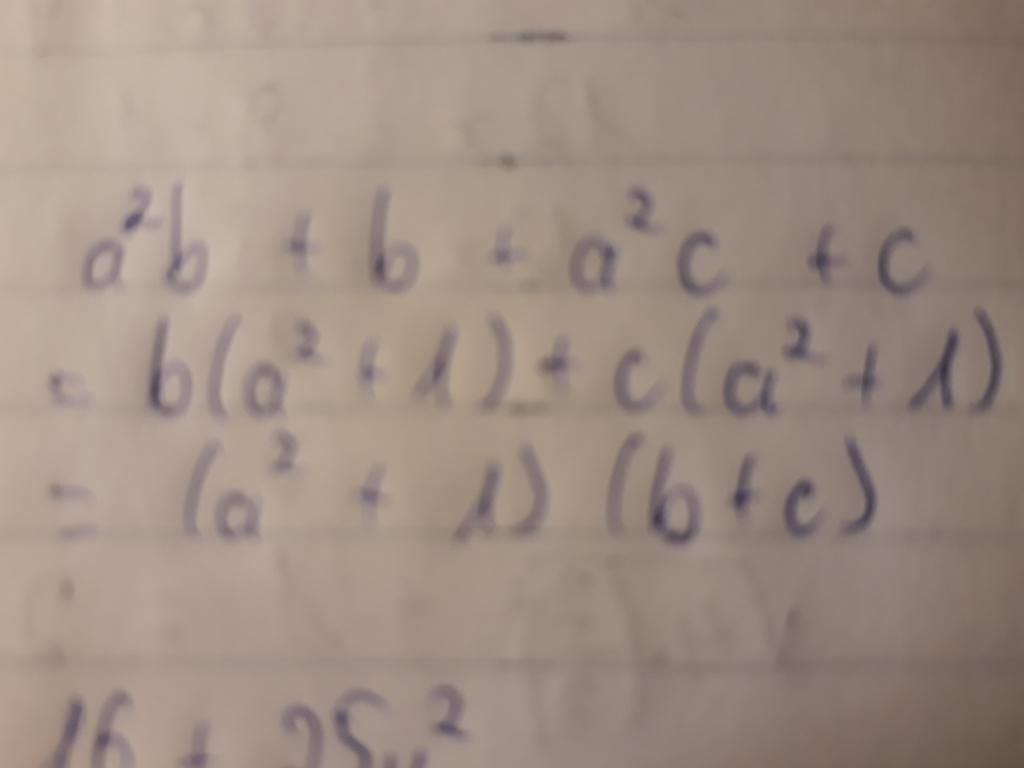 a²b + b + a²c + c
= b(a² + 1) + c(a² + 1)
= (a² + 1) (b + c)
16 + 25y²